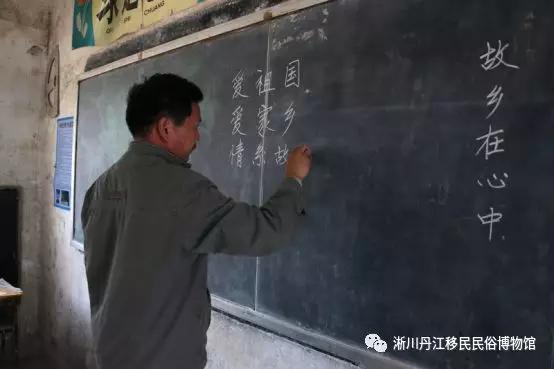 CHUANG
爱祖国
爱家乡
情系故
故乡在心中
淅川丹江移民民俗博物馆